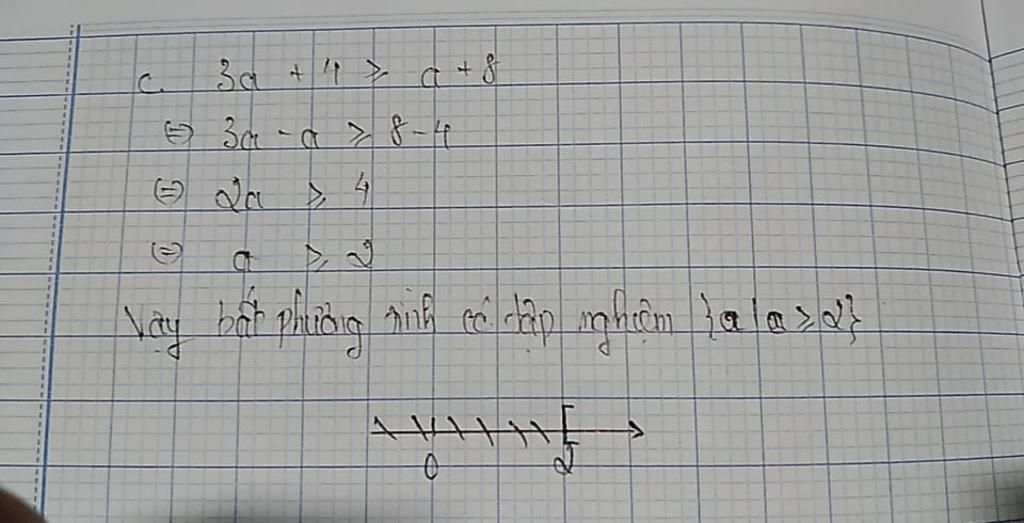 c. 3a + 4 ≥ a + 8
⇔ 3a - a ≥ 8 - 4
⇔ 2a ≥ 4
⇔ a ≥ 2
Vậy bất phương trình có tập nghiệm {a | a ≥ 2}
0 2